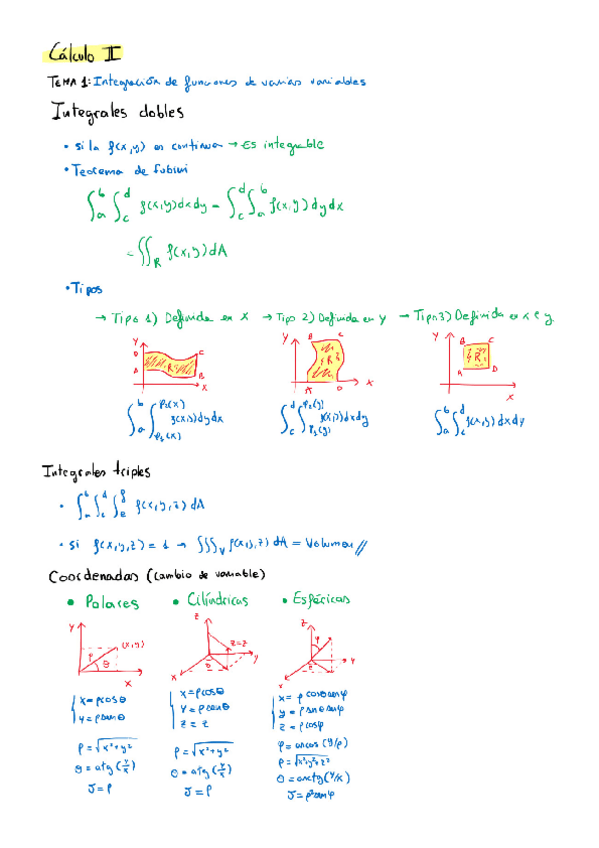 Cálculo II
TEMA 1: Integración de funciones de varias variables
Integrales dobles
• si la f(x,y) es continua → Es integrable
• Teorema de fubini
∫_a^b ∫_c^d f(x,y)dxdy = ∫_c^d ∫_a^b f(x,y)dydx
= ∬_R f(x,y)dA
• Tipos
→ Tipo 1) Definida en x → Tipo 2) Definida en y → Tipo 3) Definida en x e y
Y D C A B R x
Y B C R A D x
Y B C R A D x
∫_a^b ∫_φ₁(x)^φ₂(x) f(x,y)dydx ∫_c^d ∫_φ₁(y)^φ₂(y) f(x,y)dxdy ∫_a^b ∫_c^d f(x,y)dxdy
Integrales triples
• ∫_a^b ∫_c^d ∫_e^f f(x,y,z)dA
• si f(x,y,z)=1 → ∭_V f(x,y,z)dA = Volumen //
Coordenadas (cambio de variable)
• Polares • Cilíndricas • Esféricas
Y (x,y) ρ θ x
z z=z θ y x
z φ θ y x
x=ρcosθ x=ρcosθ x=ρcosθsenφ
y=ρsenθ y=ρsenθ y=ρsenθsenφ
z=z z=ρcosφ
φ=arcos(y/ρ)
ρ=√x²+y² ρ=√x²+y² ρ=√x²+y²+z²
θ=atg(y/x) θ=atg(y/x) θ=arctg(y/x)
J=ρ J=ρ J=ρ²senφ